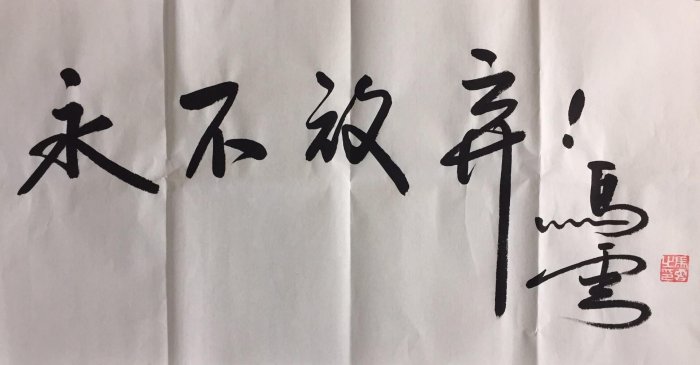 永不放弃！
馬雲
馬雲之印